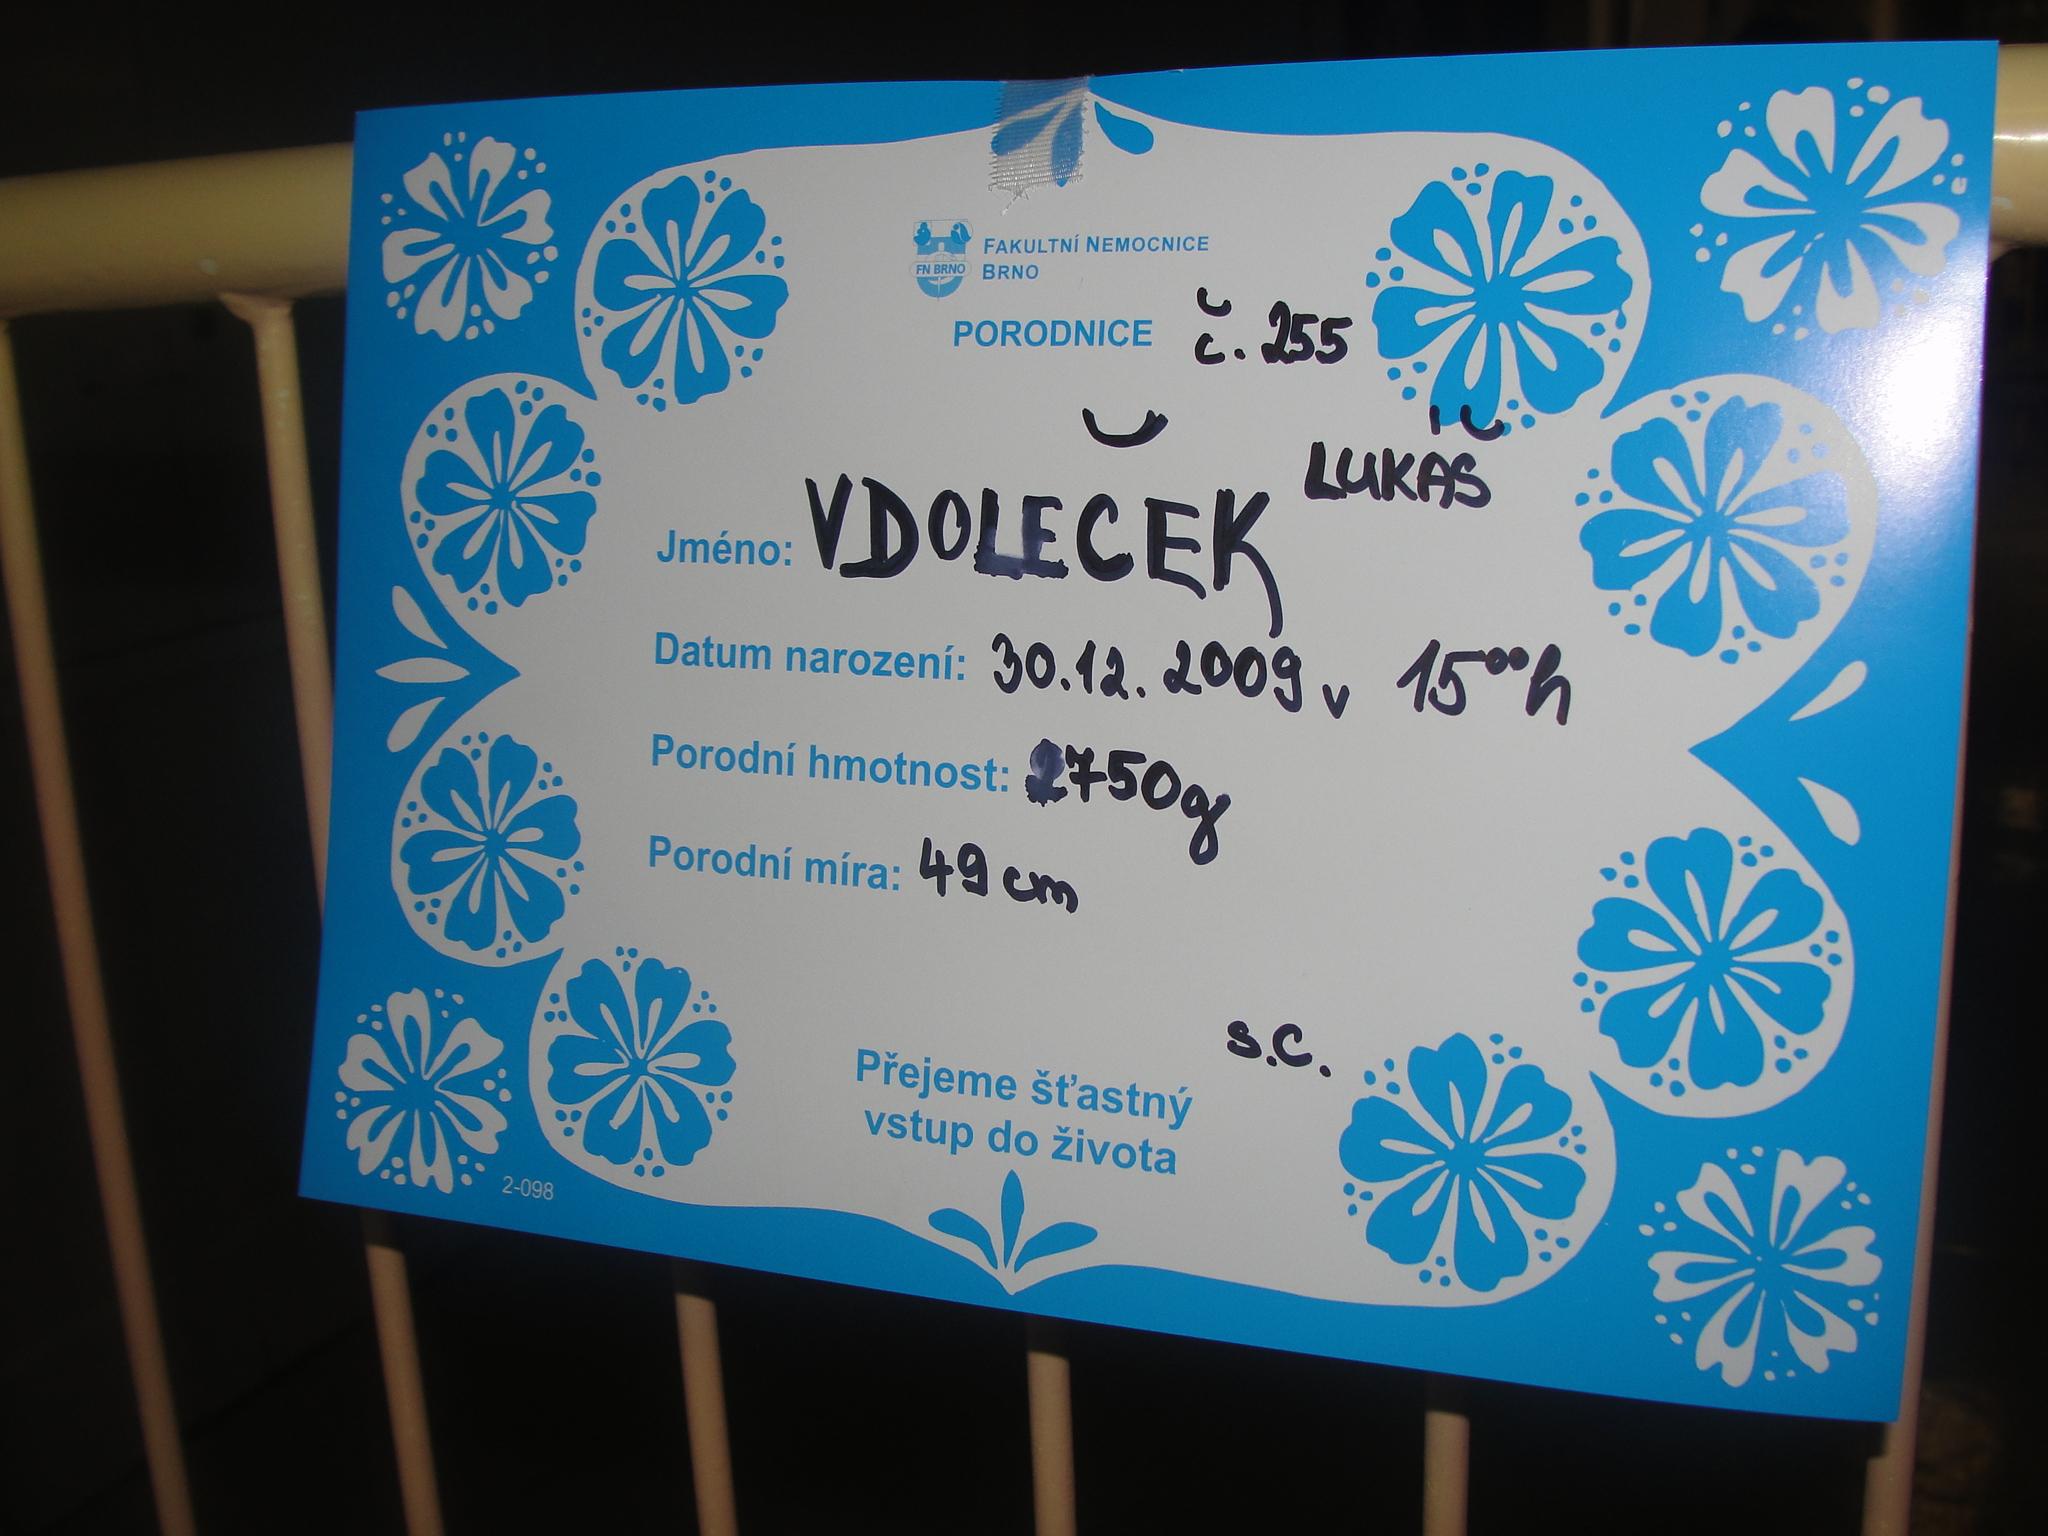 FN BRNO
FAKULTNÍ NEMOCNICE
BRNO
PORODNICE č. 255
Jméno: VDOLEČEK LUKÁŠ
Datum narození: 30.12.2009 v 15⁰⁰h
Porodní hmotnost: 2750g
Porodní míra: 49 cm
S.C.
Přejeme šťastný
vstup do života
2-098